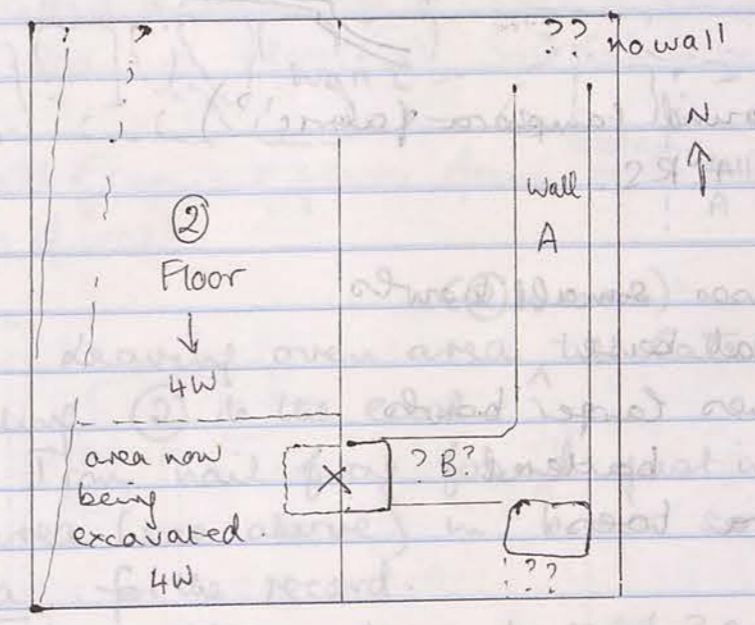 ?? no wall
N
Wall
A
②
Floor
4W
area now
being
excavated.
4W
? B?
X
???